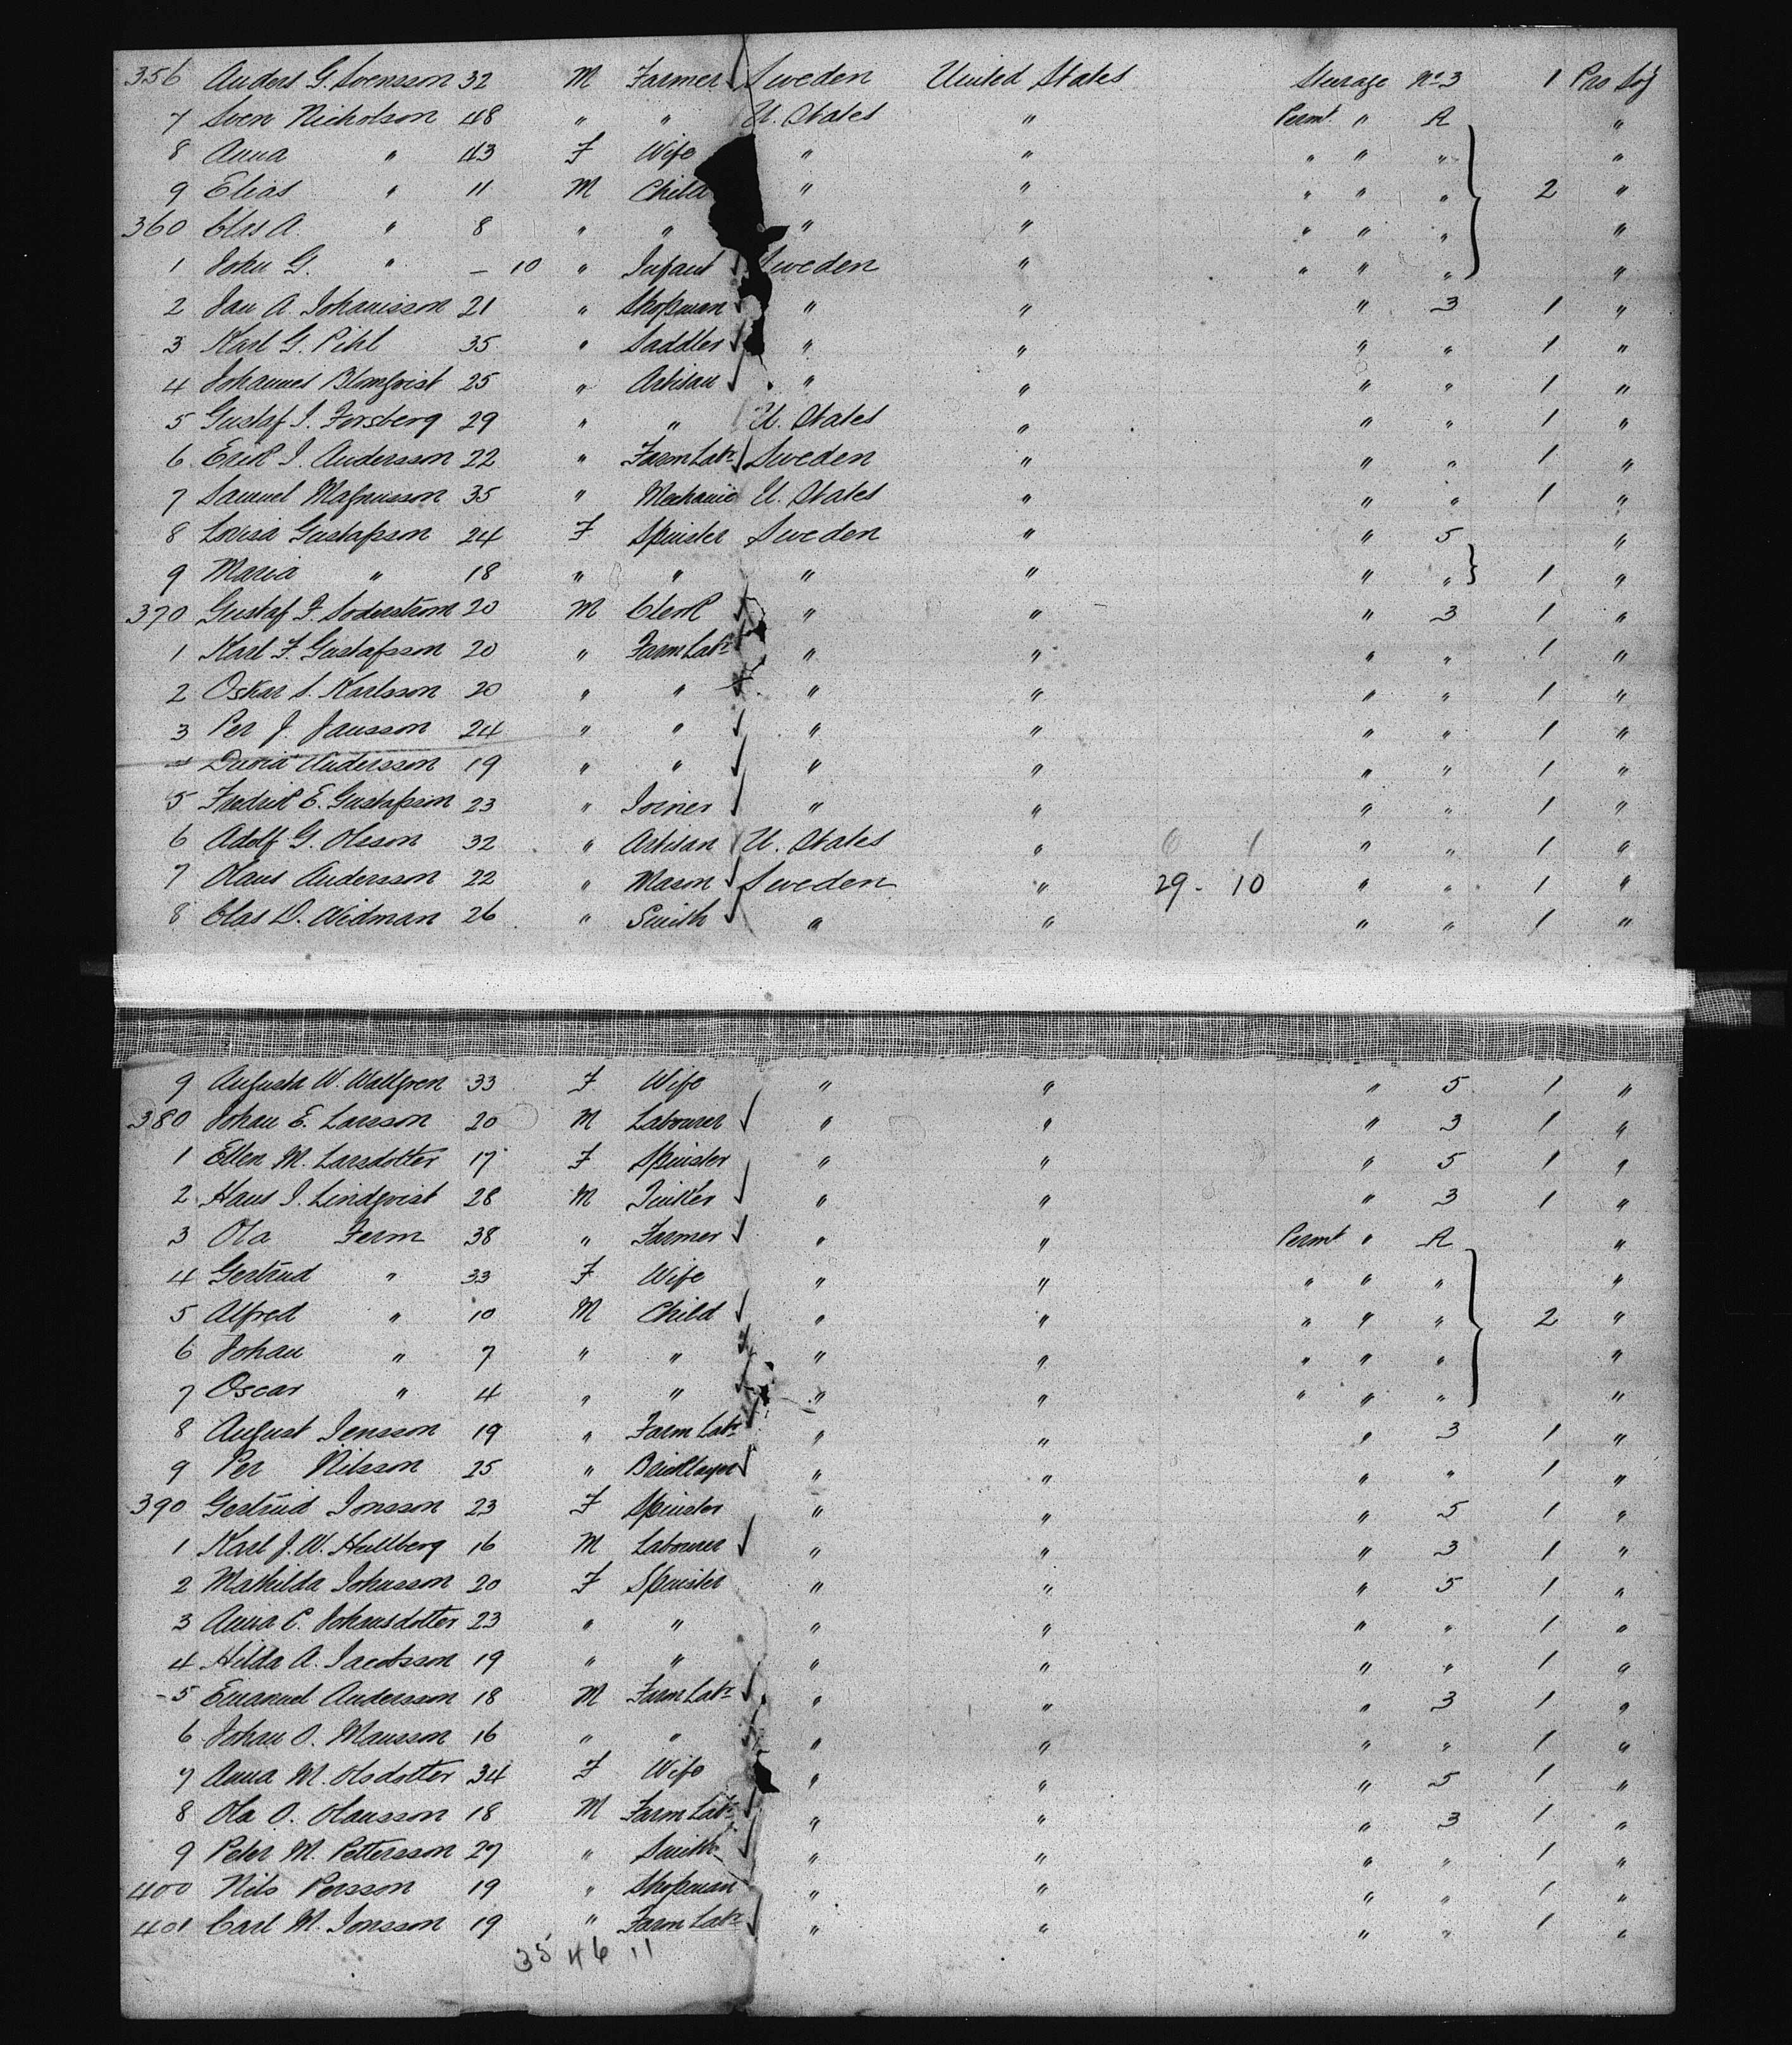 356 Anders G. Svensson 32 M Farmer Sweden United States Steerage No 3 1 Pro Soj
7 Sven Nicholson 48 " " U. States " Permt. " A "
8 Anna " 43 F Wife " " " " " "
9 Elias " 11 M Child " " " " " 2 "
360 Clas A. " 8 " " " " " " " "
1 John G. " – 10 " Infant Sweden " " " " "
2 Jan A. Johanisson 21 " Shopman " " " 3 1 "
3 Karl G. Pihl 35 " Saddler " " " " 1 "
4 Johannes Blomqvist 25 " Artisan " " " " 1 "
5 Gustaf I. Forsberg 29 " " U. States " " " 1 "
6 Erik I. Andersson 22 " Farm Labr Sweden " " " 1 "
7 Samuel Magnusson 35 " Mechanic U. States " " " 1 "
8 Lovisa Gustafsson 24 F Spinster Sweden " " 5 "
9 Maria " 18 " " " " " " 1 "
370 Gustaf F. Soderstrom 20 M Clerk " " " 3 1 "
1 Karl F. Gustafsson 20 " Farm Labr " " " " 1 "
2 Oskar S. Karlsson 20 " " " " " " 1 "
3 Per J. Jansson 24 " " " " " " 1 "
4 Andersson 19 " " " " " " 1 "
5 Fredrik E. Gustafsson 23 " Joiner " " " " 1 "
6 Adolf G. Olsson 32 " Artisan U. States " 6 1 " " 1 "
7 Olaus Andersson 22 " Mason Sweden " 29 - 10 " " 1 "
8 Clas D. Widman 26 " Smith " " " " 1 "
9 Augusta W. Wallgren 33 F Wife " " " 5 1 "
380 Johan E. Larsson 20 M Labourer " " " 3 1 "
1 Ellen M. Larsdotter 17 F Spinster " " " 5 1 "
2 Hans I. Lindqvist 28 M Tinker " " " 3 1 "
3 Ola Ferm 38 " Farmer " " Permt " A "
4 Gertrud " 33 F Wife " " " " " "
5 Alfred " 10 M Child " " " " " 2 "
6 Johan " 7 " " " " " " " "
7 Oscar " 4 " " " " " " " "
8 August Jensson 19 " Farm Labr " " " 3 1 "
9 Per Nilsson 25 " Bricklayer " " " " 1 "
390 Gertrud Jonsson 23 F Spinster " " " 5 1 "
1 Karl J. W. Hallberg 16 M Labourer " " " 3 1 "
2 Mathilda Johnsson 20 F Spinster " " " 5 1 "
3 Anna C. Johansdotter 23 " " " " " " 1 "
4 Hilda A. Jacobsson 19 " " " " " " 1 "
5 Emanuel Andersson 18 M Farm Labr " " " 3 1 "
6 Johan O. Mansson 16 " " " " " " 1 "
7 Anna M. Olsdotter 34 F Wife " " " 5 1 "
8 Ola O. Olausson 18 M Farm Labr " " " 3 1 "
9 Peter M. Pettersson 27 " Smith " " " " 1 "
400 Nils Persson 19 " Shopman " " " " 1 "
401 Carl M. Jonsson 19 " Farm Labr " " " " 1 "
35 46 11